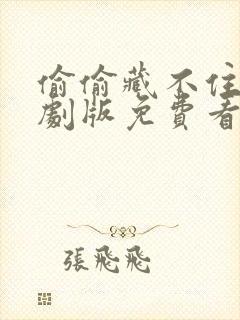 偷偷藏不住
劇版免費看
張飛飛